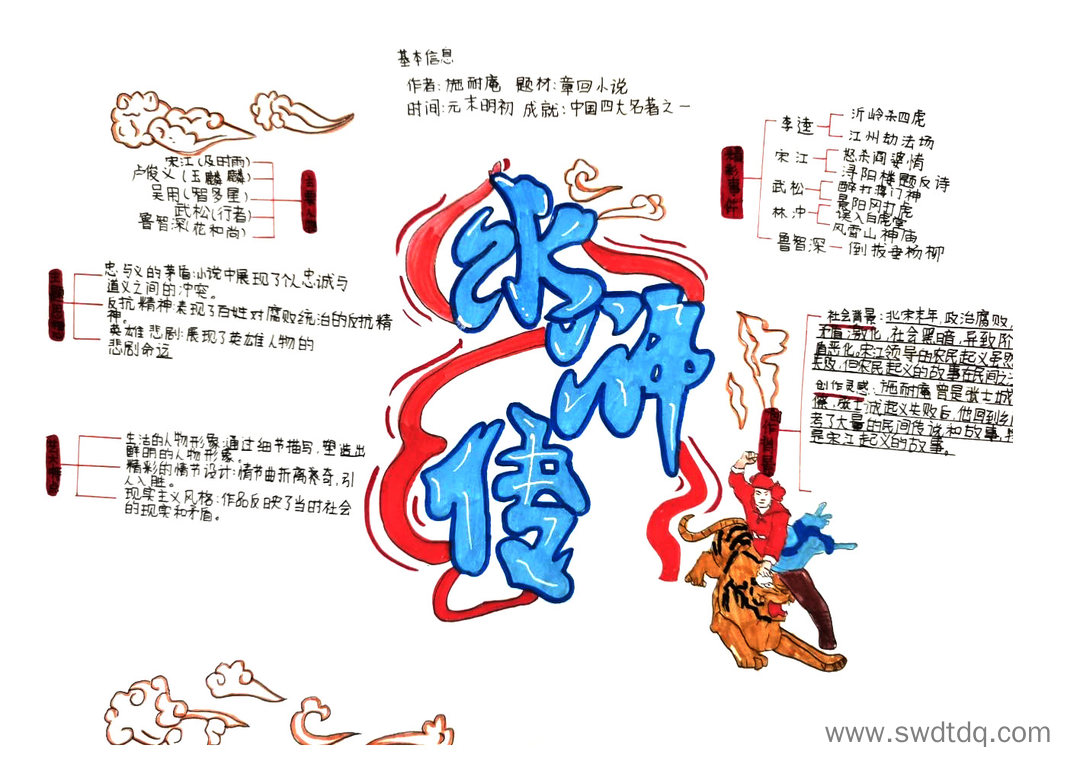 基本信息
作者:施耐庵 题材:章回小说
时间:元末明初 成就:中国四大名著之一
水浒传
宋江(及时雨)
卢俊义(玉麒麟)
吴用(智多星)
武松(行者)
鲁智深(花和尚)
主要人物
忠与义的矛盾:小说中展现了个人忠诚与
道义之间的冲突。
反抗精神:表现了百姓对腐败统治的反抗精
神。
英雄悲剧:展现了英雄人物的
悲剧命运
生活的人物形象:通过细节描写,塑造出
鲜明的人物形象。
精彩的情节设计:情节曲折离奇,引
人入胜。
现实主义风格:作品反映了当时社会
的现实和矛盾。
精彩事件
李逵
沂岭杀四虎
江州劫法场
宋江
怒杀阎婆惜
浔阳楼题反诗
武松
醉打蒋门神
景阳冈打虎
林冲
误入白虎堂
风雪山神庙
鲁智深
倒拔垂杨柳
创作背景
社会背景:北宋末年,政治腐败,
矛盾激化,社会黑暗,导致阶
恶化。宋江领导的农民起义虽然
失败,但农民起义的故事在民间
创作灵感:施耐庵曾是张士诚
张士诚起义失败后,他回到
考了大量的民间传说和故事,
是宋江起义的故事。
www.swdtdq.com